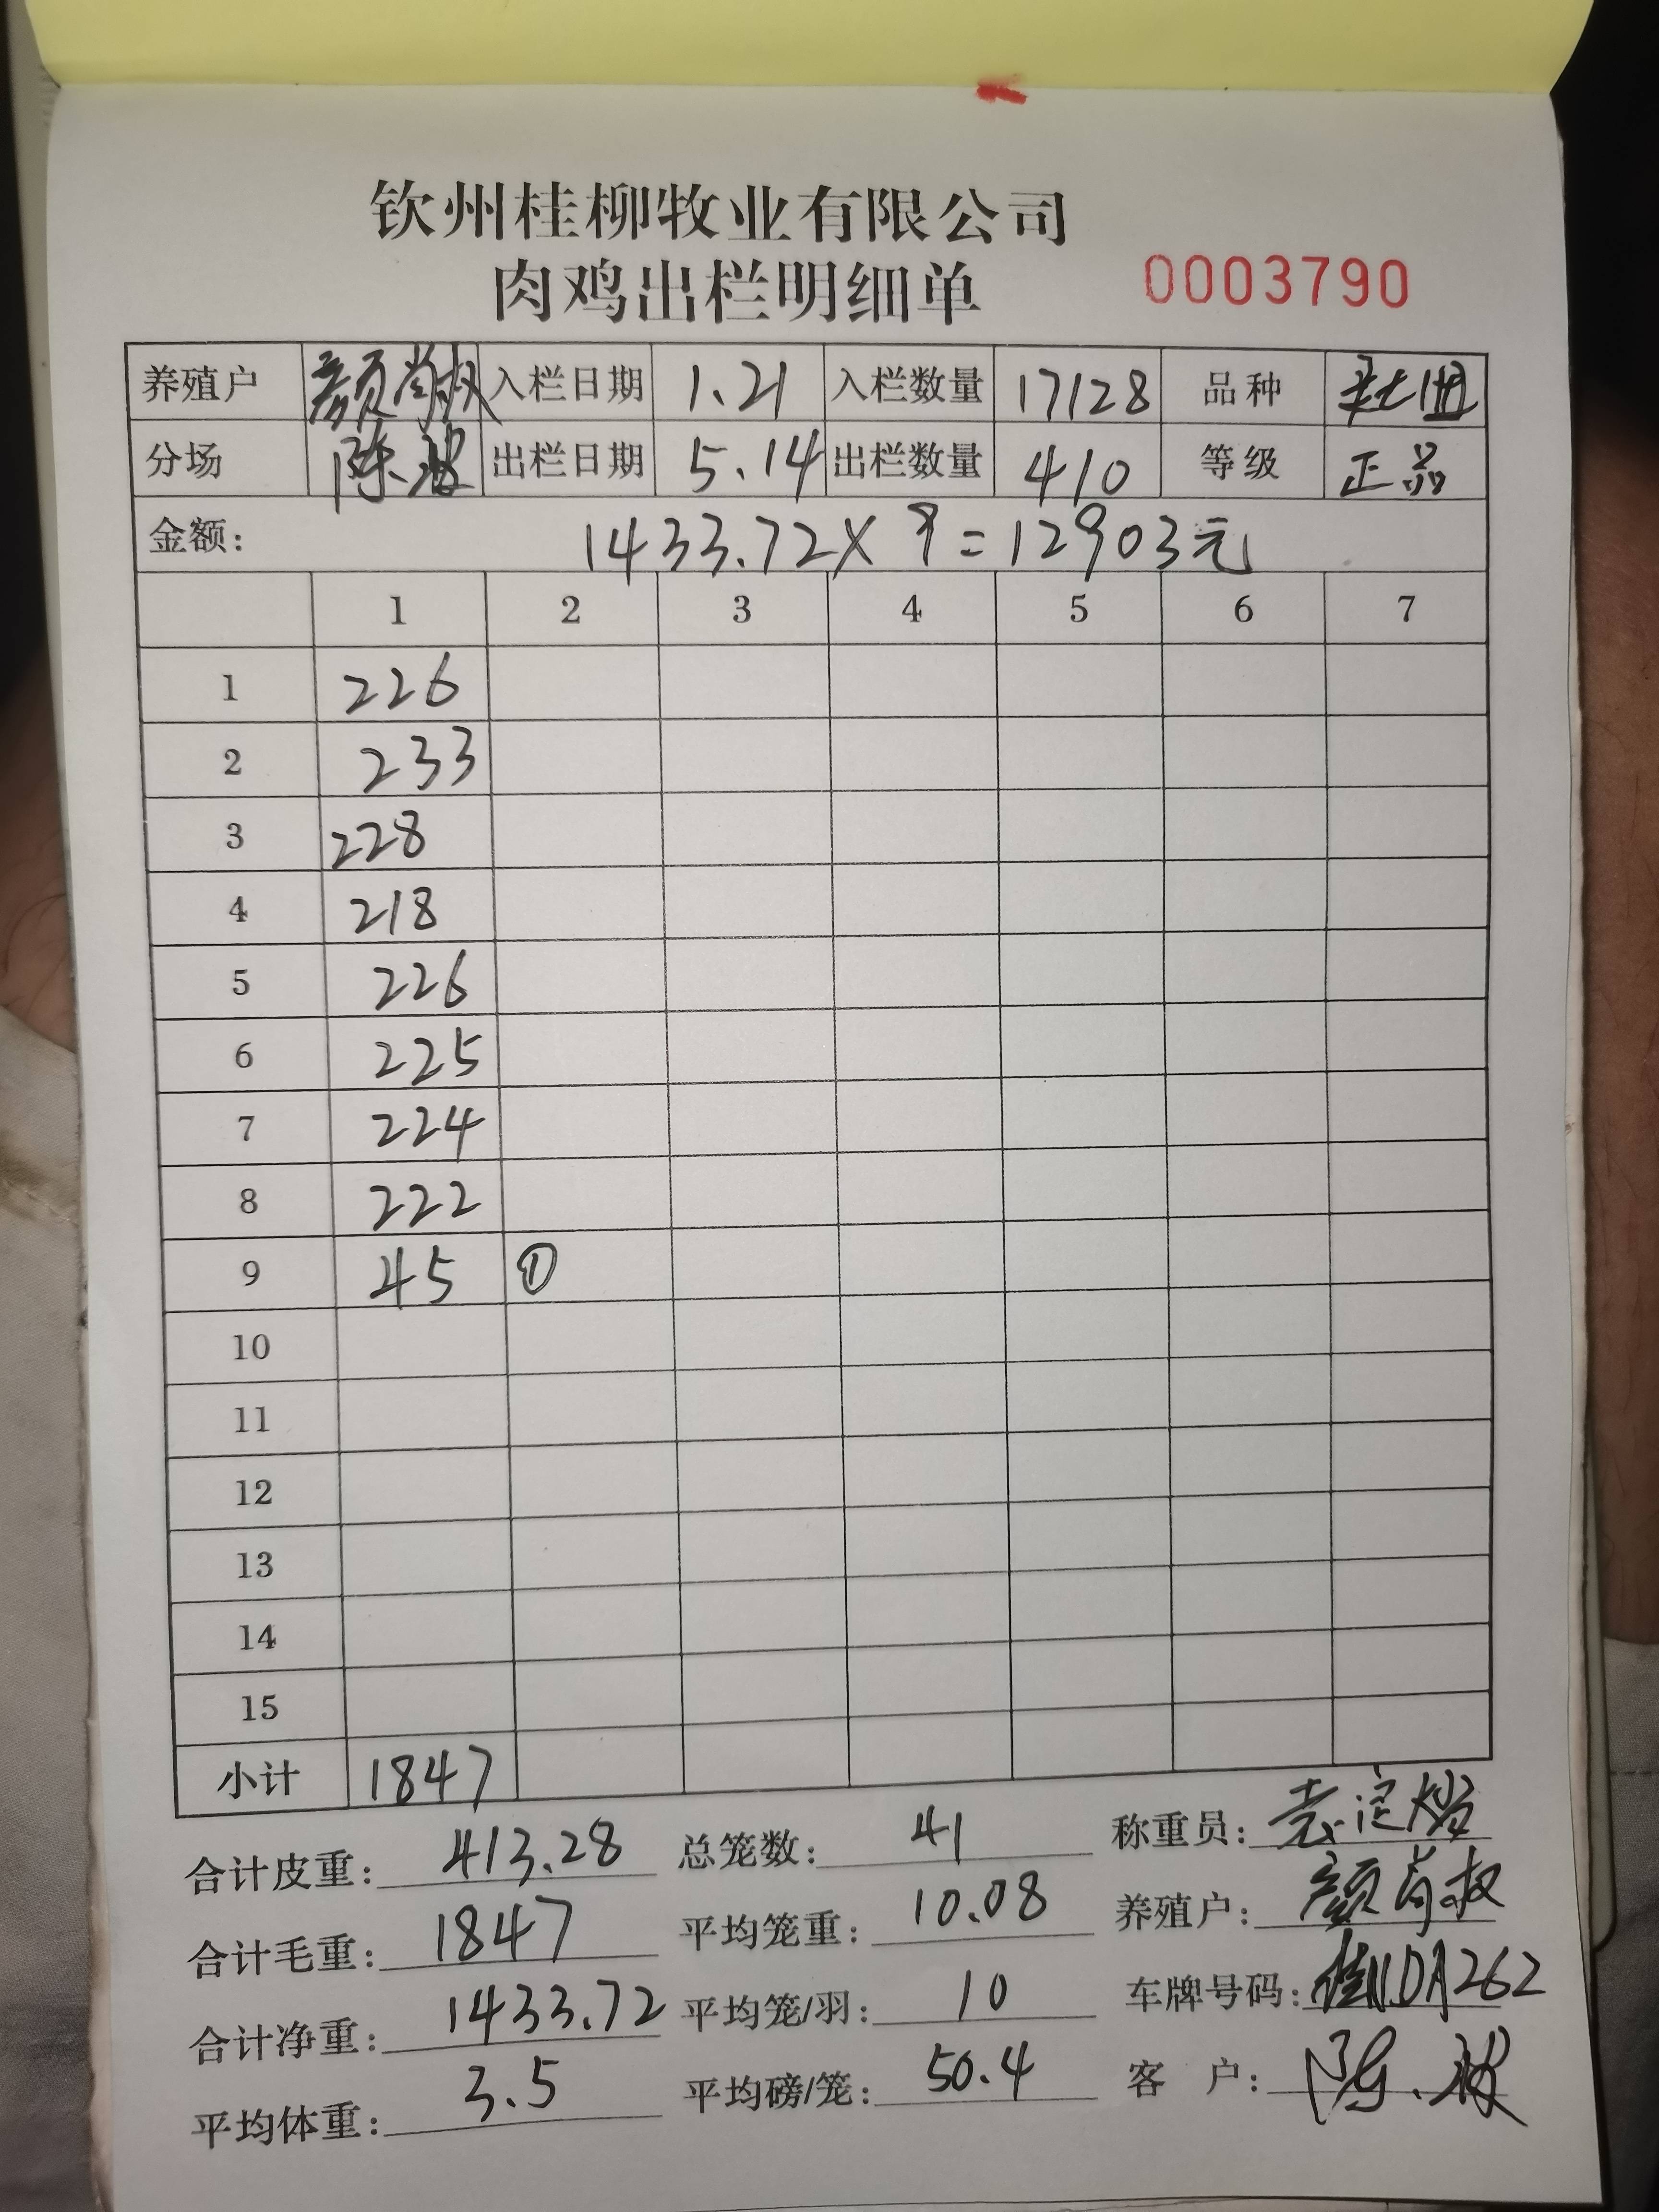 钦州桂柳牧业有限公司
肉鸡出栏明细单 0003790
养殖户 颜肖叔 入栏日期 1.21 入栏数量 17128 品种
分场 陈波 出栏日期 5.14 出栏数量 410 等级 正品
金额: 1433.72×9=12903元
1 2 3 4 5 6 7
1 226
2 233
3 228
4 218
5 226
6 225
7 224
8 222
9 45 ①
10
11
12
13
14
15
小计 1847
合计皮重: 413.28 总笼数: 41 称重员:
合计毛重: 1847 平均笼重: 10.08 养殖户: 颜肖叔
合计净重: 1433.72 平均笼/羽: 10 车牌号码: 桂NDA262
平均体重: 3.5 平均磅/笼: 50.4 客 户: 陈波